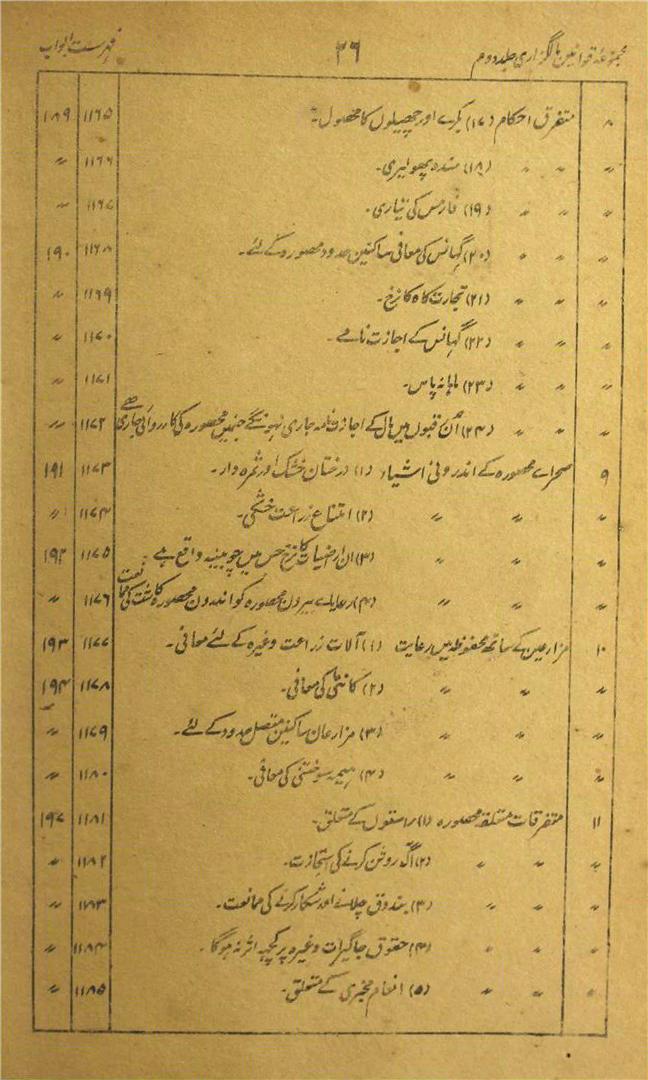 مجموعۂ قوانین مالگزاری جلد دوم ۳۶ فہرست ابواب
۸ متفرق احکام (۱۷) بکرے اور چھیلوں کا محصول۔ ۱۱۶۵ ۱۸۹
〃 〃 〃 (۱۸) منڈہ پھولیری۔ ۱۱۶۶ 〃
〃 〃 〃 (۱۹) فارمس کی تیاری۔ ۱۱۶۷ 〃
〃 〃 〃 (۲۰) گہانس کی معافی ساکنین حدود محصورہ کے لئے۔ ۱۱۶۸ ۱۹۰
〃 〃 〃 (۲۱) تجارت کاہ کا نرخ۔ ۱۱۶۹ 〃
〃 〃 〃 (۲۲) گہانس کے اجازت نامے۔ ۱۱۷۰ 〃
〃 〃 〃 (۲۳) ماہانہ پاس۔ ۱۱۷۱ 〃
〃 〃 〃 (۲۴) اُن قبوں میں مال کے اجازت نامہ جاری نہونگے جنمیں محصورہ کی کارروائی جاری ہے ۱۱۷۲ 〃
۹ صحراے محصورہ کے اندرونی اشیاء (۱) درختان خشک اور ثمرہ دار۔ ۱۱۷۳ ۱۹۱
〃 〃 〃 (۲) امتناع زراعت خشکی۔ ۱۱۷۴ 〃
〃 〃 〃 (۳) ان ارضیات کا نرخ جس میں چوبینہ واقع ہے ۱۱۷۵ ۱۹۲
〃 〃 〃 (۴) رعایاے بیرون محصورہ کو اندرون محصورہ کاشت کی ممانعت ۱۱۷۶ 〃
۱۰ مزارعین کے ساتھ محفوظہ میں رعایت (۱) آلات زراعت وغیرہ کے لئے معافی۔ ۱۱۷۷ ۱۹۳
〃 〃 〃 (۲) کانٹی کی معافی۔ ۱۱۷۸ ۱۹۴
〃 〃 〃 (۳) مزارعان ساکنین متصل حدود کے لئے۔ ۱۱۷۹ 〃
〃 〃 〃 (۴) ہیمہ سوختنی کی معافی۔ ۱۱۸۰ 〃
۱۱ متفرقات متعلقہ محصورہ (۱) راستوں کے متعلق۔ ۱۱۸۱ ۱۹۷
〃 〃 〃 (۲) آگ روشن کرنے کی استجازت۔ ۱۱۸۲ 〃
〃 〃 〃 (۳) بندوق چلانے اور شکار کرنے کی ممانعت۔ ۱۱۸۳ 〃
〃 〃 〃 (۴) حقوق جاگیرات وغیرہ پر کچہہ اثر نہ ہوگا۔ ۱۱۸۴ 〃
〃 〃 〃 (۵) انعام مخبری کے متعلق۔ ۱۱۸۵ 〃